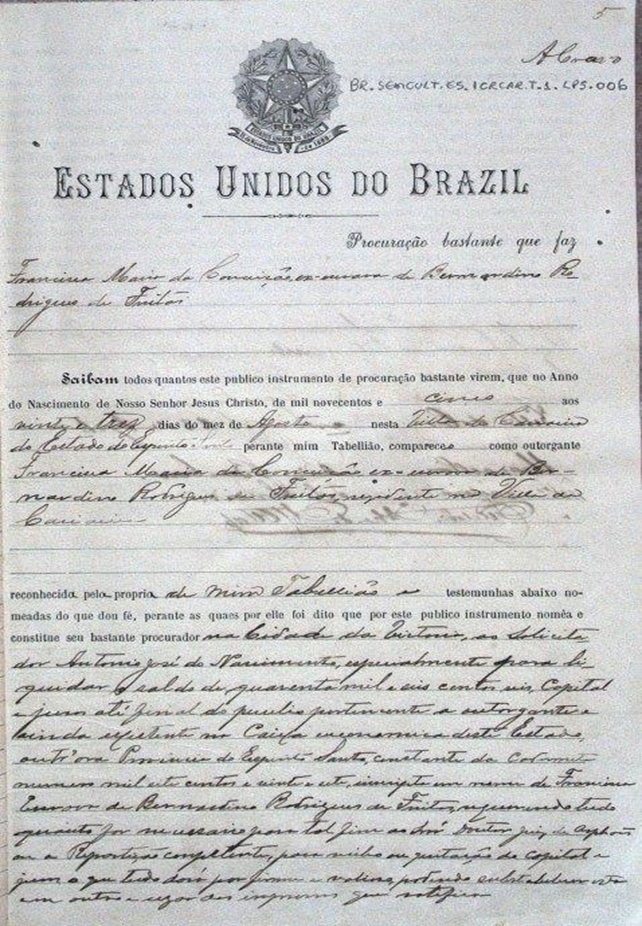 5
BR.SEMCULT.ES.ICRCAR.T.1.LPS.006
ESTADOS UNIDOS DO BRAZIL
15 de Novembro de 1889
ESTADOS UNIDOS DO BRAZIL
Procuração bastante que faz
Francisca Maria da Conceição ex-escrava de Bernardino Ro-
drigues de Freitas
Saibam todos quantos este publico instrumento de procuração bastante virem, que no Anno
do Nascimento de Nosso Senhor Jesus Christo, de mil novecentos e cinco aos
vinte e trez dias do mez de Agosto nesta Villa de Cariacica
do Estado do Espirito Santo perante mim Tabellião, compareceo como outorgante
Francisca Maria da Conceição ex-escrava de Ber-
nardino Rodrigues de Freitas, residente na Villa de
Cariacica
reconhecida pela propria de mim Tabellião e testemunhas abaixo no-
meadas do que dou fé, perante as quaes por elle foi dito que por este publico instrumento nomêa e
constitue seu bastante procurador na Cidade da Victoria, ao Solicita
dor Antonio José do Nascimento, especialmente para li-
quidar o saldo de quarenta mil e seis centos reis, Capital
e juros até final do peculio pertencente a outorgante e
ainda existente na Caixa economica deste Estado,
outr'ora Provincia do Espirito Santo, constante da Caderneta
numero mil e centos e vinte e, inscripta em nome de Francisca
Escrava de Bernardino Rodrigues de Freitas, requerendo tudo
quanto for necessario para tal fim ao Snr Doutor Juiz de Orphãos
ou a Repartição competente, para quitação do capital e
juros o que tudo dará por firme e valioso, podendo substabelecer esta
em outro e usar dos impressos que ratifica